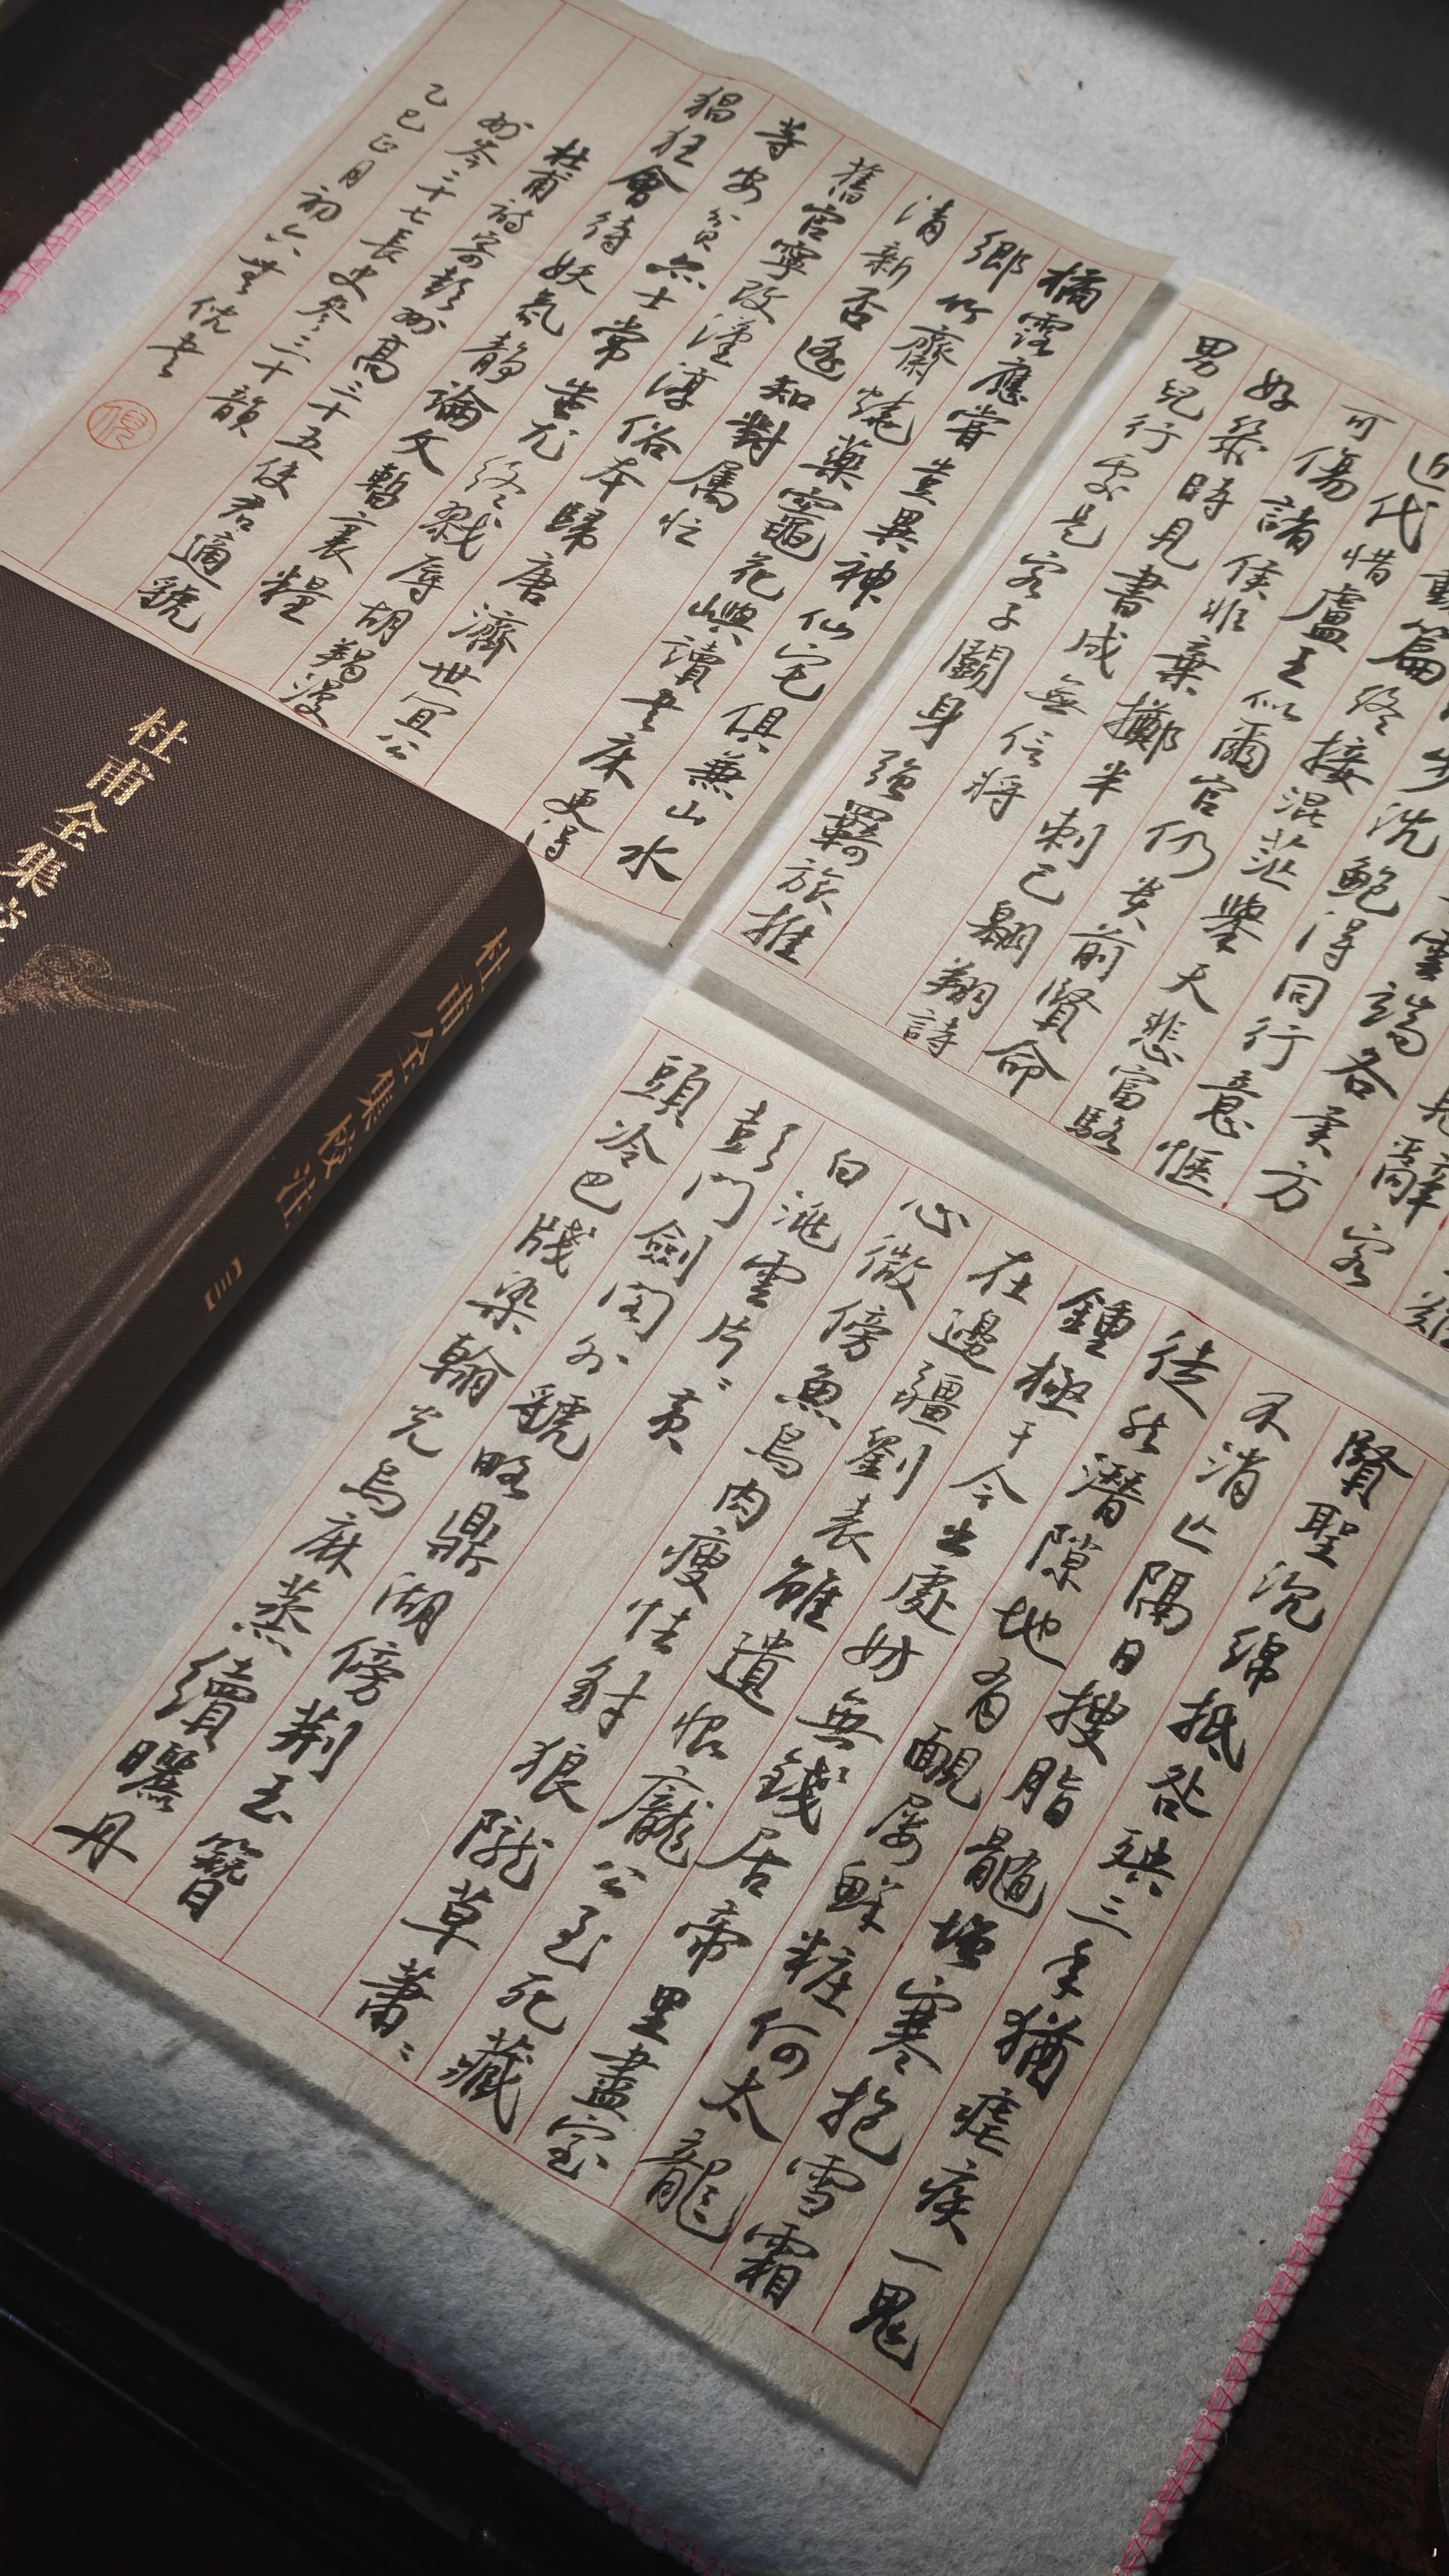 見辭客
雲端各異方
步沈鮑得同行意愜
動篇終接混茫舉天悲富駱
近代惜盧王似爾官仍貴前賢命
可傷諸侯非棄擲半刺已翱翔詩
好幾時見書成無信將
男兒行處是客子鬭身強羈旅推
賢聖沉綿抵咎殃三年猶瘧疾一鬼
不消亡隔日搜脂髓增寒抱雪霜
徒然潛隙地有靦屢鮮粧何太龍
鍾極于今出處妨無錢居帝里盡室
在邊疆劉表雖遺恨龐公至死藏
心微傍魚鳥肉瘦怯豺狼隴草蕭〻
白洮雲片〻黃
彭門劍閣外虢略鼎湖傍荊玉簪
頭冷巴牋染翰光烏麻蒸續曬丹
橘露應嘗豈異神仙宅俱兼山水
鄉竹齋燒藥竈花嶼讀書床更得
清新否遙知對属忙
舊官寧改漢淳俗本歸唐濟世宜公
等安貧亦士常蚩尤終戮辱胡羯漫
猖狂會待妖氛靜論文暫裹糧
杜甫詩寄彭州高三十五使君適虢
州岑二十七長史參三十韻
乙巳正月初六書
倪
杜甫全集
杜甫全集校注
【三】